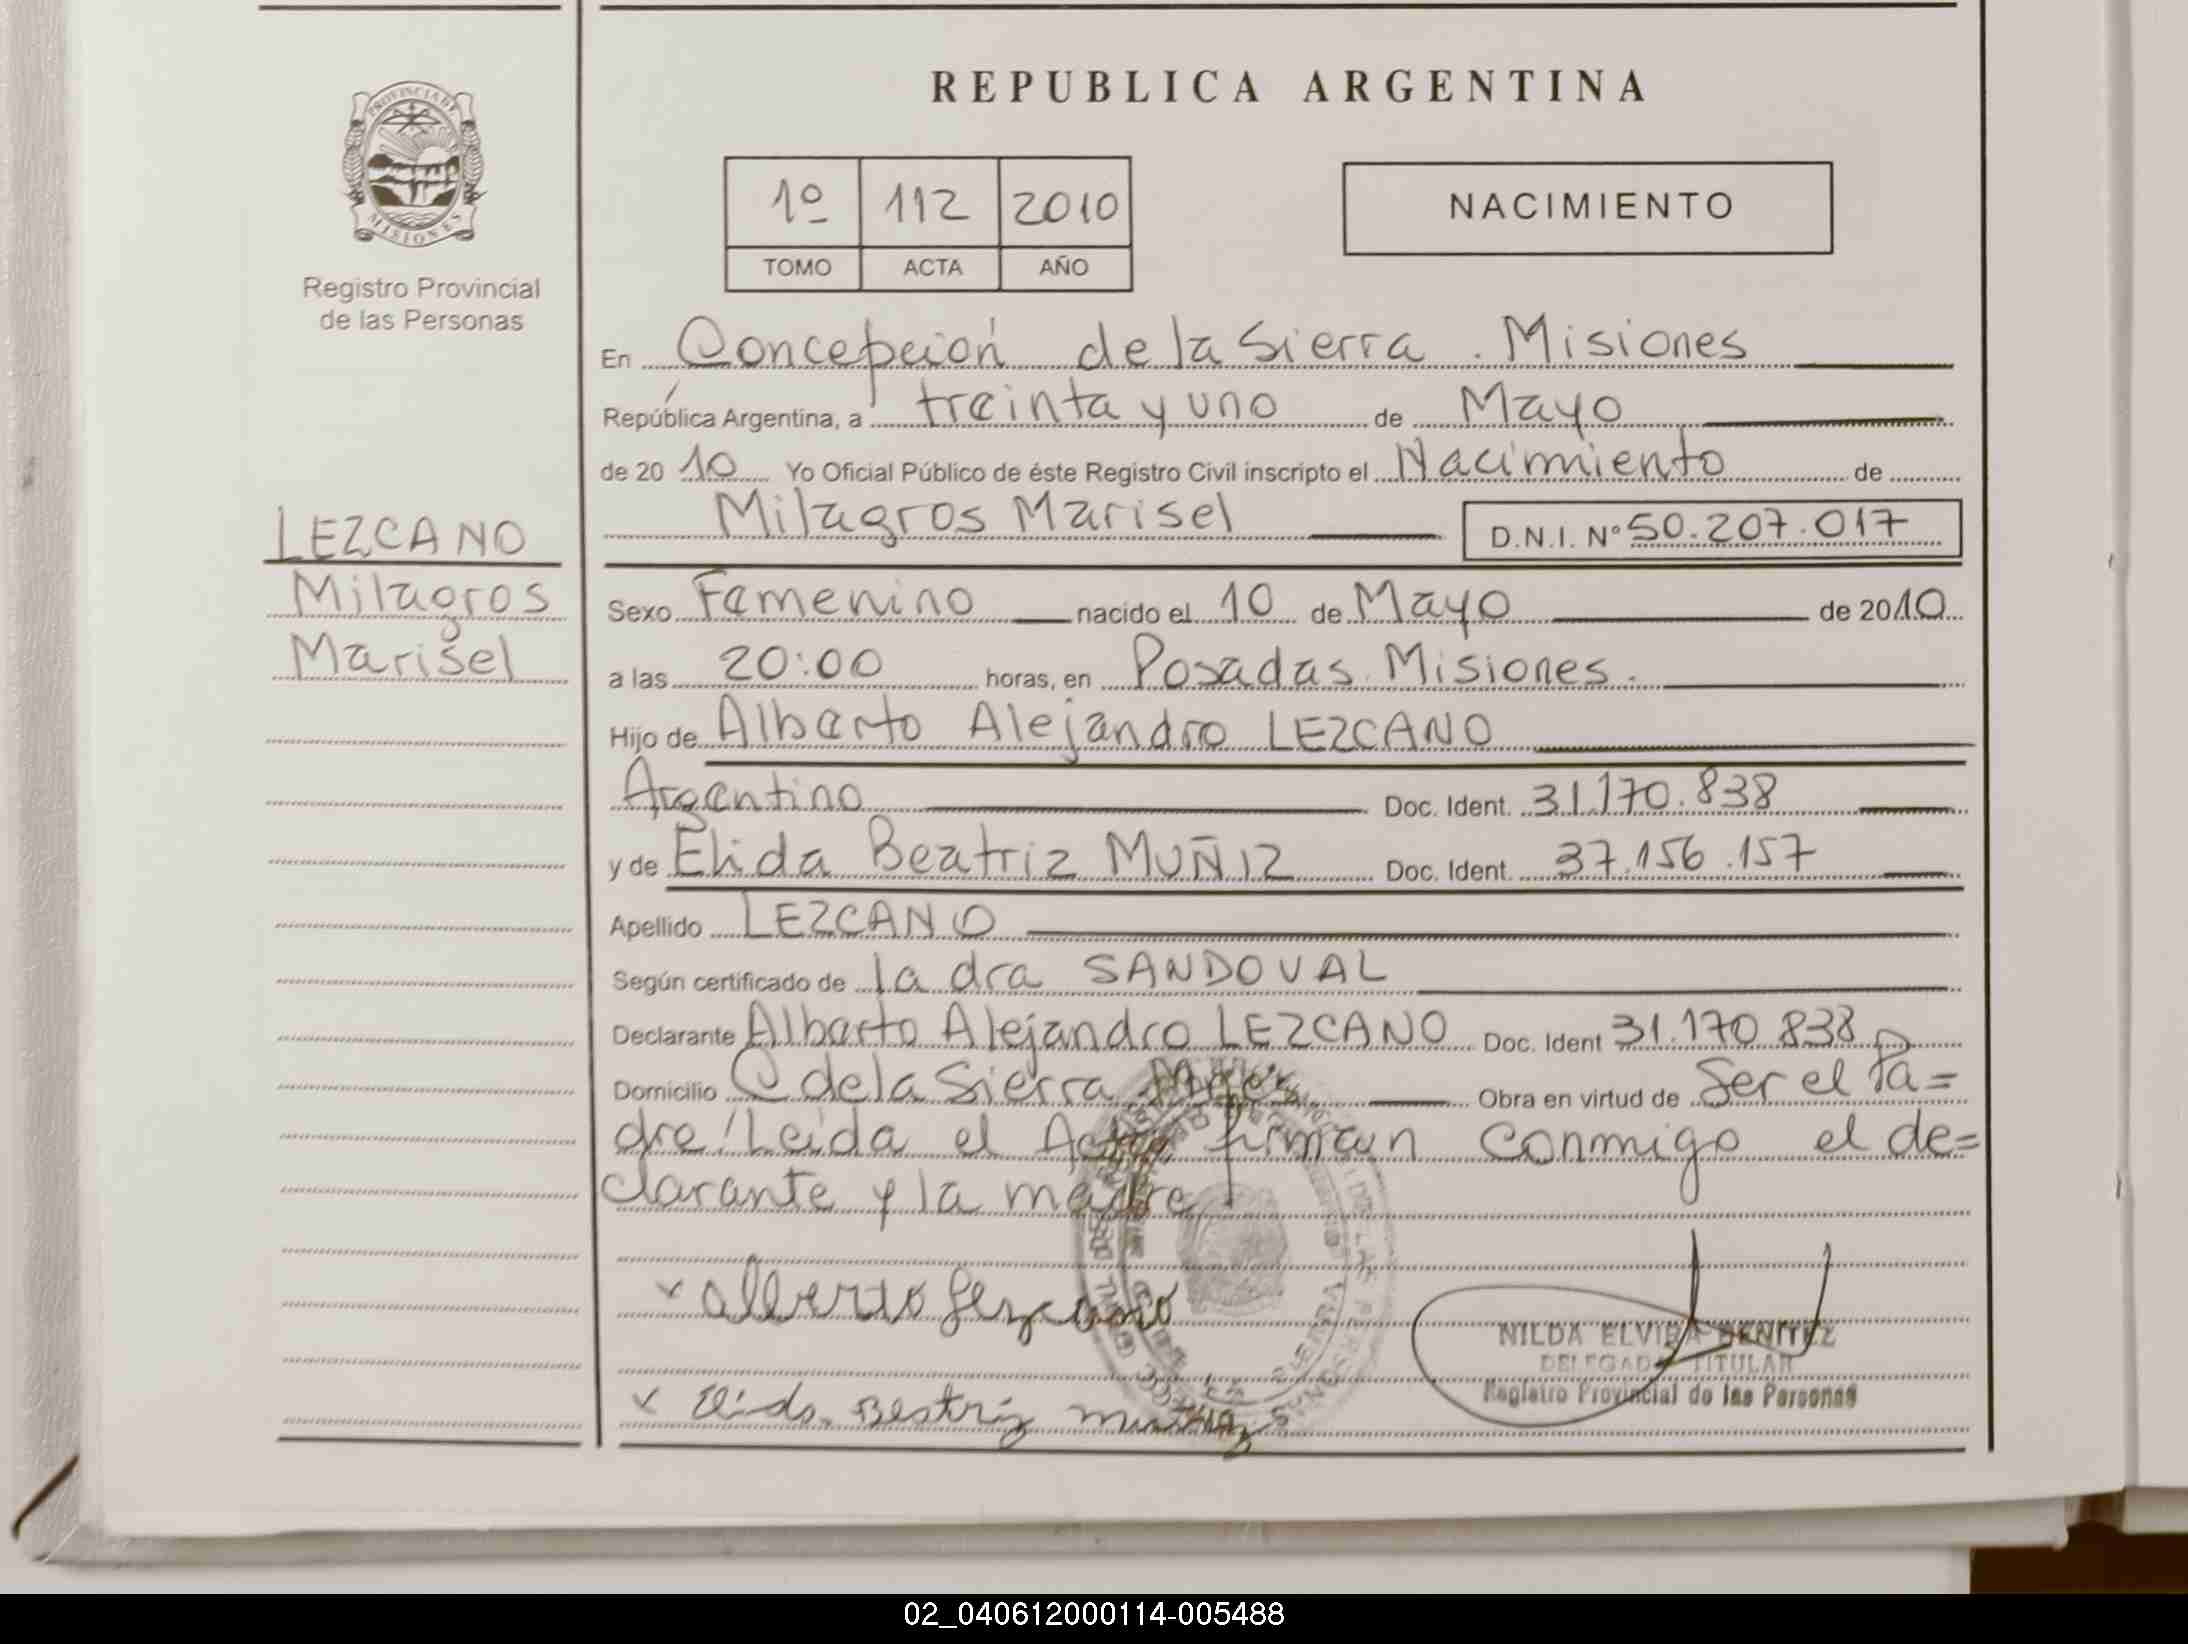 REPUBLICA ARGENTINA
PROVINCIA DE
MISIONES
Registro Provincial
de las Personas
1º 112 2010
TOMO ACTA AÑO
NACIMIENTO
En Concepción de la Sierra . Misiones
República Argentina, a treinta y uno de Mayo
de 20 10 Yo Oficial Público de éste Registro Civil inscripto el Nacimiento de
Milagros Marisel D.N.I. Nº 50.207.017
LEZCANO
Milagros
Marisel
Sexo Femenino nacido el 10 de Mayo de 2010
a las 20:00 horas, en Posadas. Misiones.
Hijo de Alberto Alejandro LEZCANO
Argentino Doc. Ident. 31.170.838
y de Elida Beatriz MUÑIZ Doc. Ident. 37.156.157
Apellido LEZCANO
Según certificado de la dra SANDOVAL
Declarante Alberto Alejandro LEZCANO Doc. Ident 31.170.838
Domicilio C de la Sierra Mnes Obra en virtud de Ser el Pa=
dre/Leida el Acta, firman conmigo el de=
clarante y la madre
x alberto Lezcano
x Elida Beatriz
NILDA ELVIRA BENITEZ
DELEGADA TITULAR
Registro Provincial de las Personas
02_040612000114-005488